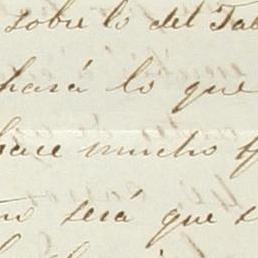 sobre lo del Tab
hará lo que
hace mucho
será que s